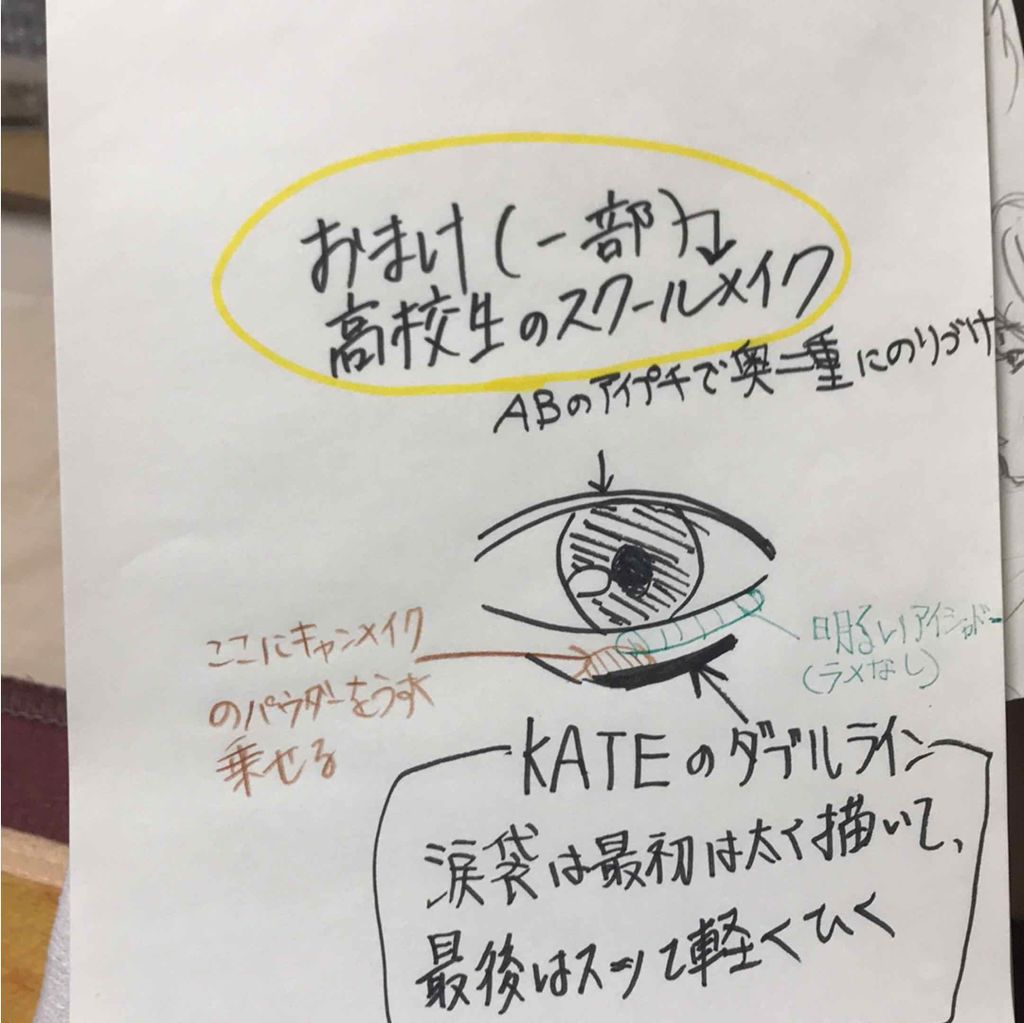 おまけ(一部)↓
高校生のスクールメイク
ABのアイプチで奥二重にのりづけ
ここにキャンメイク
のパウダーをうすく
乗せる
明るいアイシャドー
(ラメなし)
KATEのダブルライン
涙袋は最初は太く描いて、
最後はスッて軽くひく